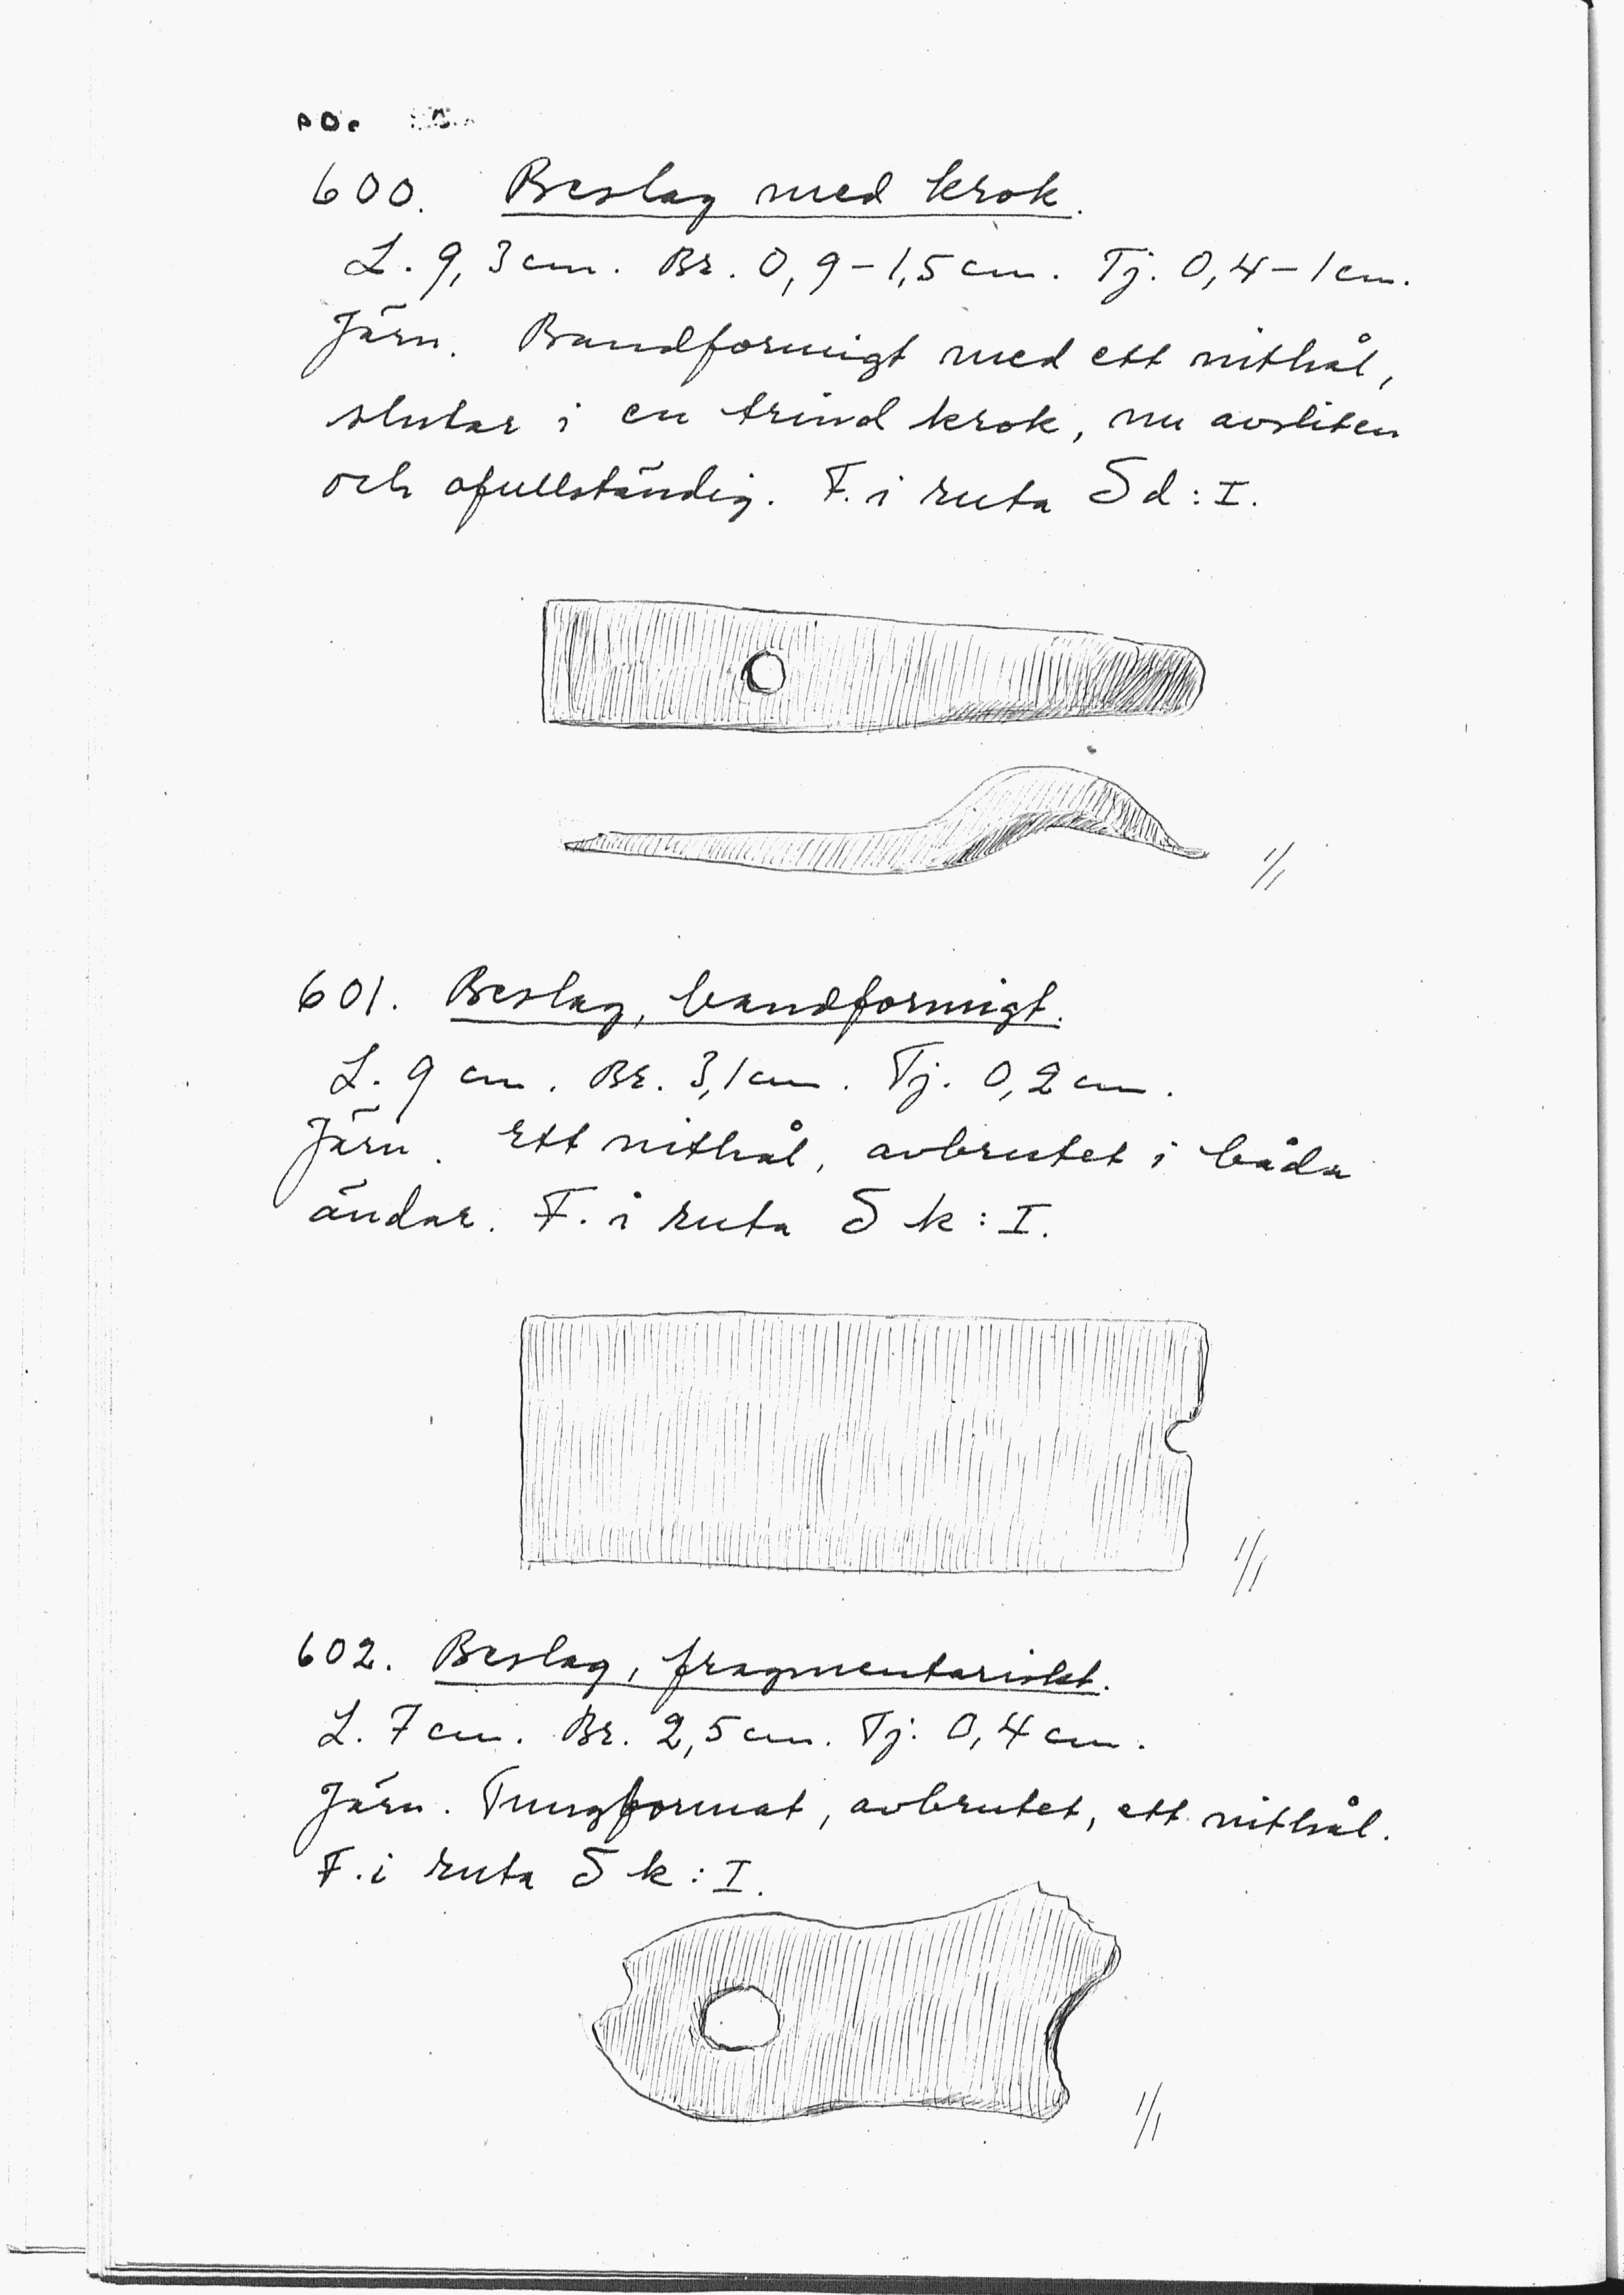 600. Beslag med krok.
L. 9,3 cm. Br. 0,9-1,5 cm. Tj. 0,4-1 cm.
Järn. Bandformigt med ett nithål,
slutar i en trind krok, nu avsliten
och ofullständig. F. i ruta Sd:I.
1/1
601. Beslag, bandformigt.
L. 9 cm. Br. 3,1 cm. Tj. 0,2 cm.
Järn. Ett nithål, avbrutet i båda
ändar. F. i ruta Sk:I.
1/1
602. Beslag, fragmentariskt.
L. 7 cm. Br. 2,5 cm. Tj. 0,4 cm.
Järn. Tungformat, avbrutet, ett nithål.
F. i ruta Sk:I.
1/1